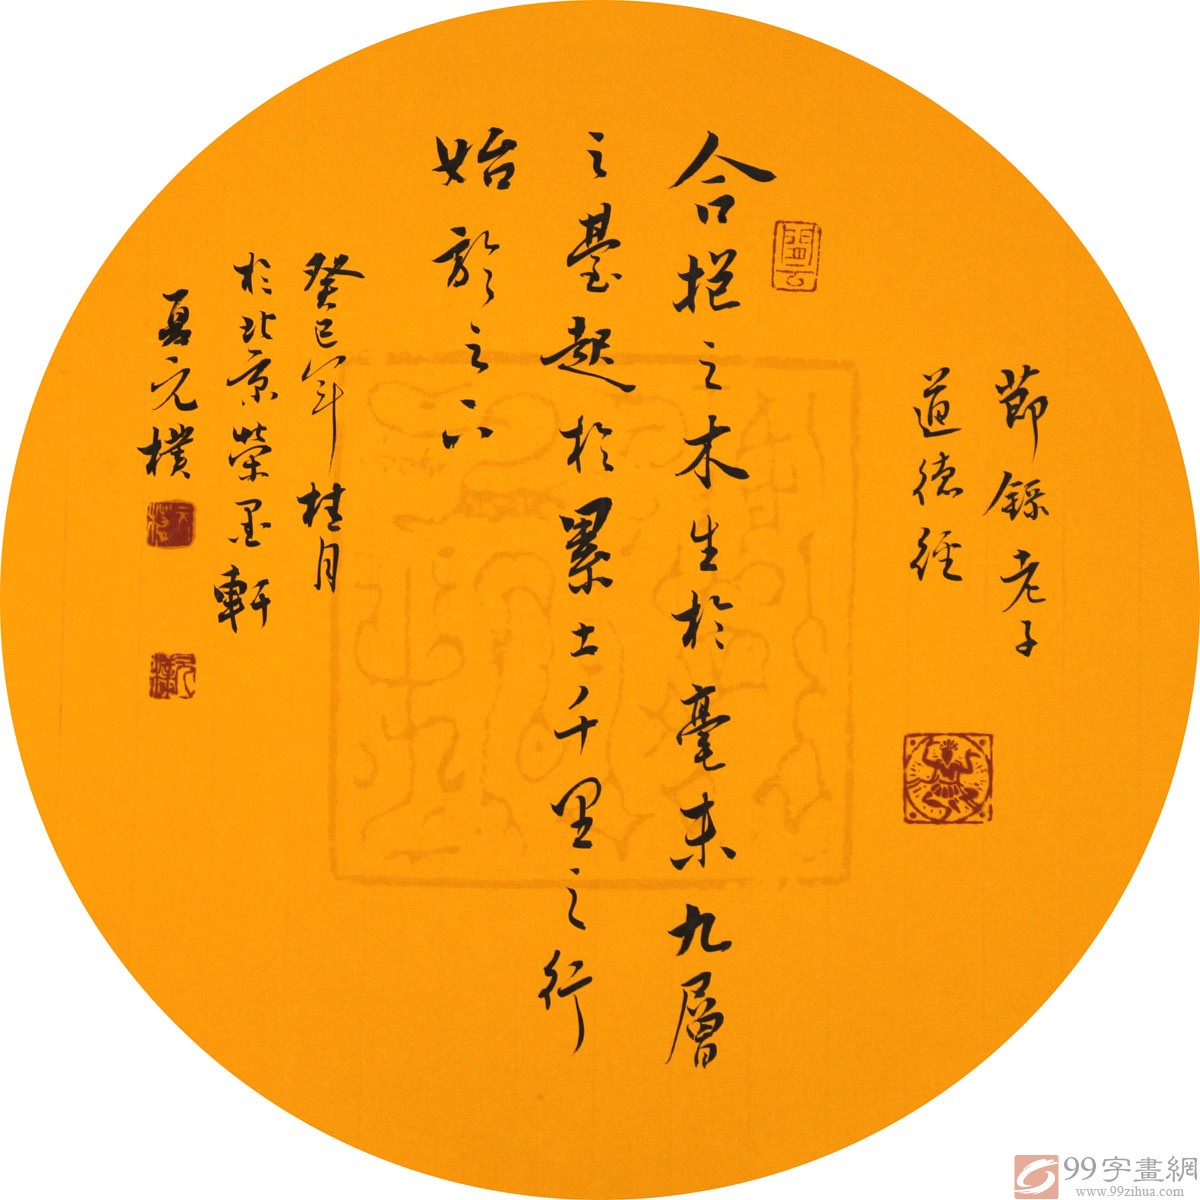 節錄老子
道德經
合抱之木生於毫末九層
之臺起於累土千里之行
始於足下
癸巳年桂月
於北京榮墨軒
夏元樸
99字畫網
www.99zihua.com